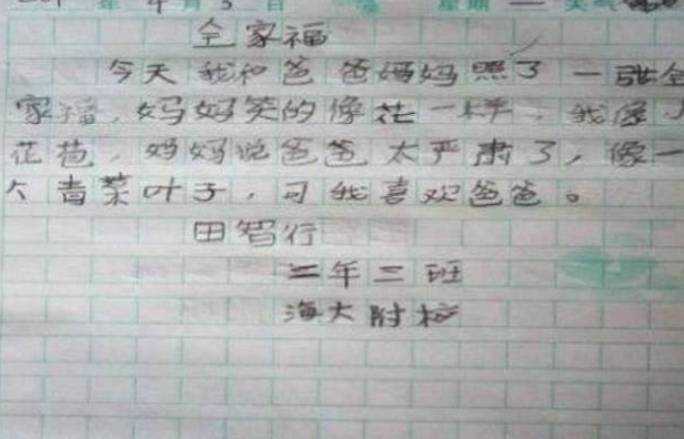 年 4 月 3 日 星期一 天气
全家福
今天我和爸爸妈妈照了一张全
家福，妈妈笑的像花一样，我像小
花苞，妈妈说爸爸太严肃了，像一
个青菜叶子，可我喜欢爸爸。
田智行
二年二班
海大附校